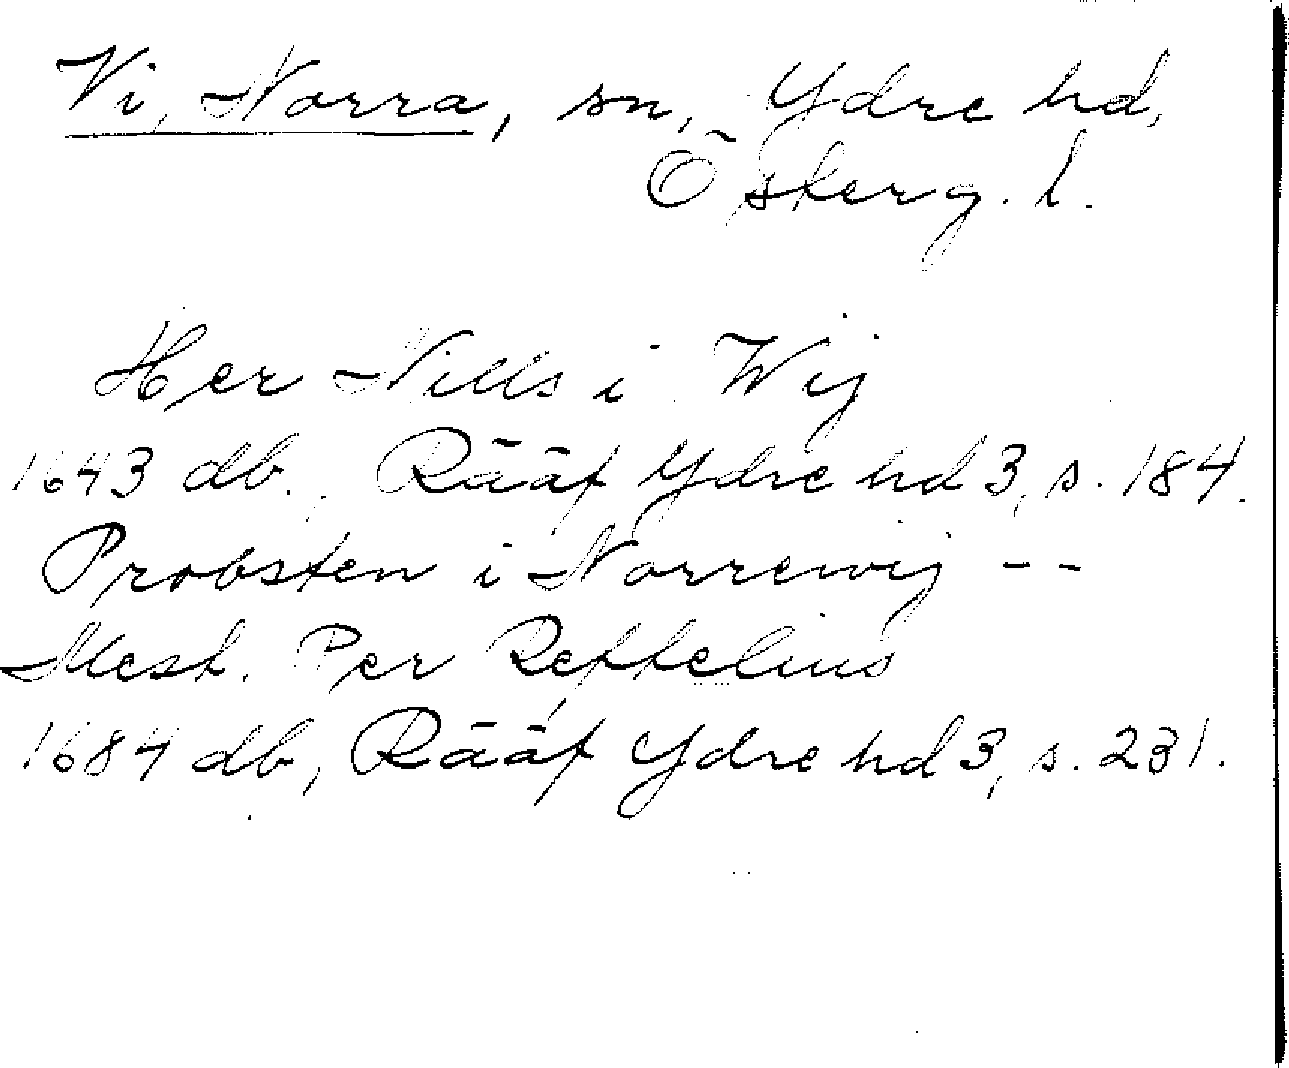 Vi, Norra, sn, Ydre hd,
Österg. l.
Her Nills i Wij
1643 db., Rääf Ydre hd 3, s. 184.
Probsten i Norrewij --
Mest. Per Reftelius
1684 db, Rääf Ydre hd 3, s. 231.